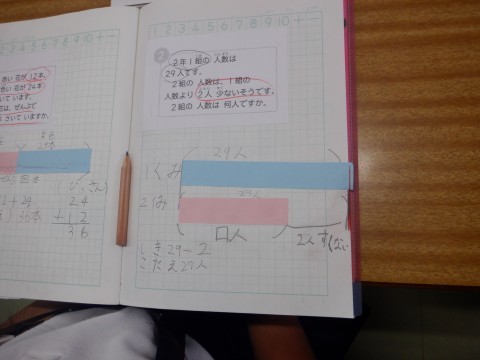 1 2 3 4 5 6 7 8 9 10 + −
赤い 花が 12本、
白い 花が 24本
さいて います。
花は、ぜんぶで
さいて いますか。
24
+12
36
1 2 3 4 5 6 7 8 9 10 + −
2
2年1組の 人数は
29人です。
2組の 人数は、1組の
人数より 2人 少ないそうです。
2組の 人数は 何人ですか。
29人
1くみ
2くみ
27人
□人
2人 すくない
しき29−2
こたえ27人